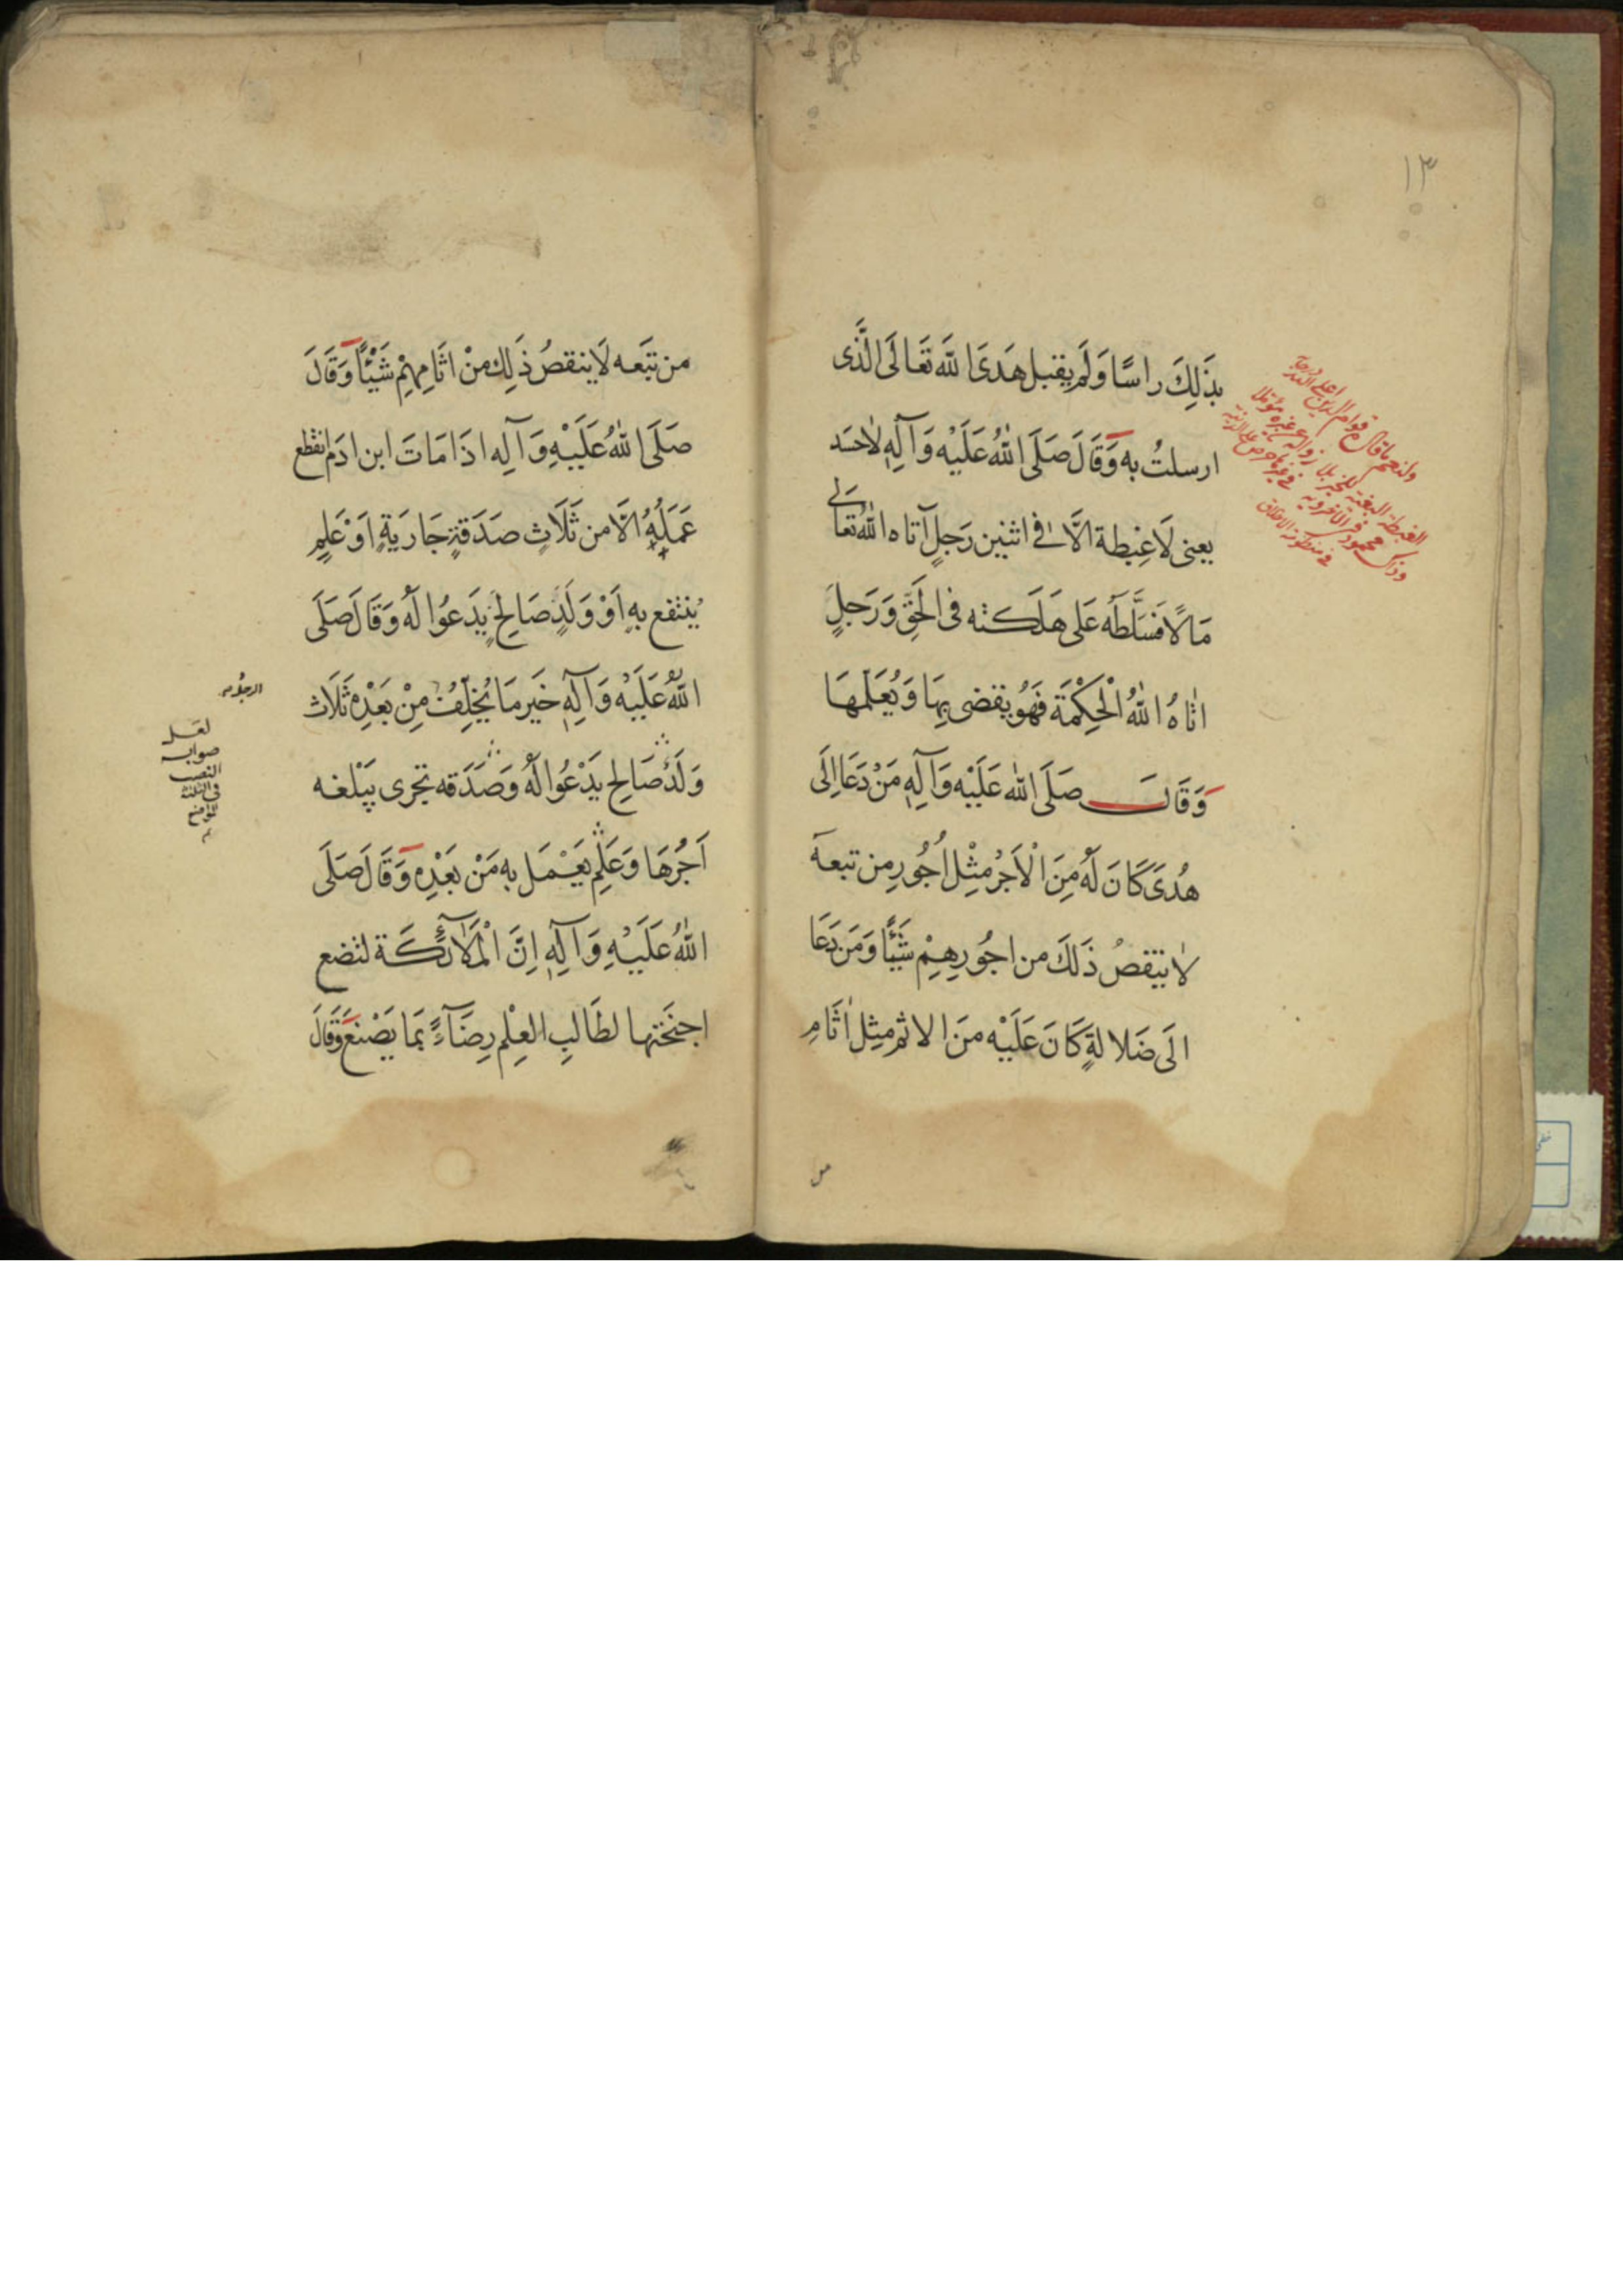 ١٣
بِذَلِكَ راسًا وَلَم يقبل هَدَىَ اللّه تَعَالَى الَّذى
ارسلتُ به وَقَالَ صَلَى اللّٰهُ عَلَيْه وَآلِهٖ لاحسَد
يعنى لَا غِبطة الَّا فى اثنين رَجلٍ آتاه اللّٰه تعالى
مَالًا فَسَلَّطَه عَلى هَلَكته فى الحَقِّ وَرَجلٍ
اتٰاهُ اللّٰهُ الْحِكْمَةَ فَهُو يقضى بِهَا وَيُعَلّمهَا
وَقَالَ صَلَى اللّٰه عَلَيْه وَآلِهٖ مَنْ دَعَا اِلَى
هُدىً كَانَ لَهُ مِنَ الْاَجْرُ مِثْل اُجُورِ من تبعه
لا ينقصُ ذَلَكَ من اجُورِهِمْ شَيْئًا وَمَن دَعَا
الَى ضَلالةٍ كَانَ عَلَيْه منَ الاثم مِثل اٰثَامِ
ولنعم ما قال
الغبطة
من تَبَعه لَا ينقصُ ذَلِك منْ اثَامِهِمْ شَيْئًا وَقَالَ
صَلَى اللّٰهُ عَلَيْهِ وَآلِه اذَا مَاتَ ابن ادَم انقطع
عَمَلُهُ الَّا من ثَلَاثٍ صَدَقةٍ جَارَيَةٍ اَوْ عَلمٍ
يُنتفع بهِ اَوْ وَلَدٍ صَالحٍ يَدَعُوا لَهُ وَقَالَ صَلَى
اللّٰهُ عَلَيْهْ وَآلِهٖ خَير مَا يُخلِفُ مِنْ بَعْدِه ثَلَاث
وَلَدٌ صَالِح يَدْعُوا لَهُ وَصَدَقه تجرى يَبْلغه
اَجْرُهَا وَعَلِم يَعْمَل بِه مَنْ بَعْدِه وَقَالَ صَلَى
اللّٰهُ عَلَيْهِ وَآلِهٖ اِنَّ الْمَلآئكَة لتضع
اجنَحَتها لطَالبِ العِلْم رِضَآءً بمَا يَصْنَع وَقَالَ
لعَل
صواب
النصب
فى الثلثة